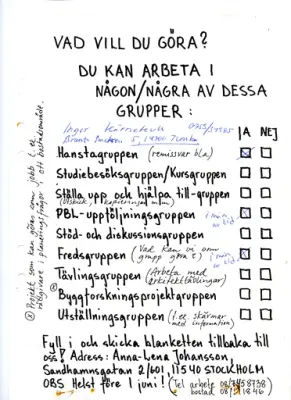 VAD VILL DU GÖRA?
DU KAN ARBETA I
NÅGON/NÅGRA AV DESSA
GRUPPER:
Inger
JA NEJ
Hanstagruppen (remissvar bl a)
Studiebesöksgruppen/Kursgruppen
Ställa upp och hjälpa till-gruppen
(Utskick, kopieringar m.m.
PBL-uppföljningsgruppen
Stöd- och diskussionsgruppen
Fredsgruppen (Vad kan vi som
grupp göra?)
Tävlingsgruppen (Arbeta med
arkitekttävlingar)
Byggforskningsprojektgruppen
Utställningsgruppen (t.ex. skärmar
med information)
Fyll i och skicka blanketten tillbaka till
oss! Adress: Anna-Lena Johansson,
Sandhamnsgatan 2/601, 115 40 STOCKHOLM
OBS Helst före 1 juni! (Tel arbete
bostad
Projekt som kan göras som jobb t.ex.
rådgivare i planeringsfrågor i ett bostadsområde.